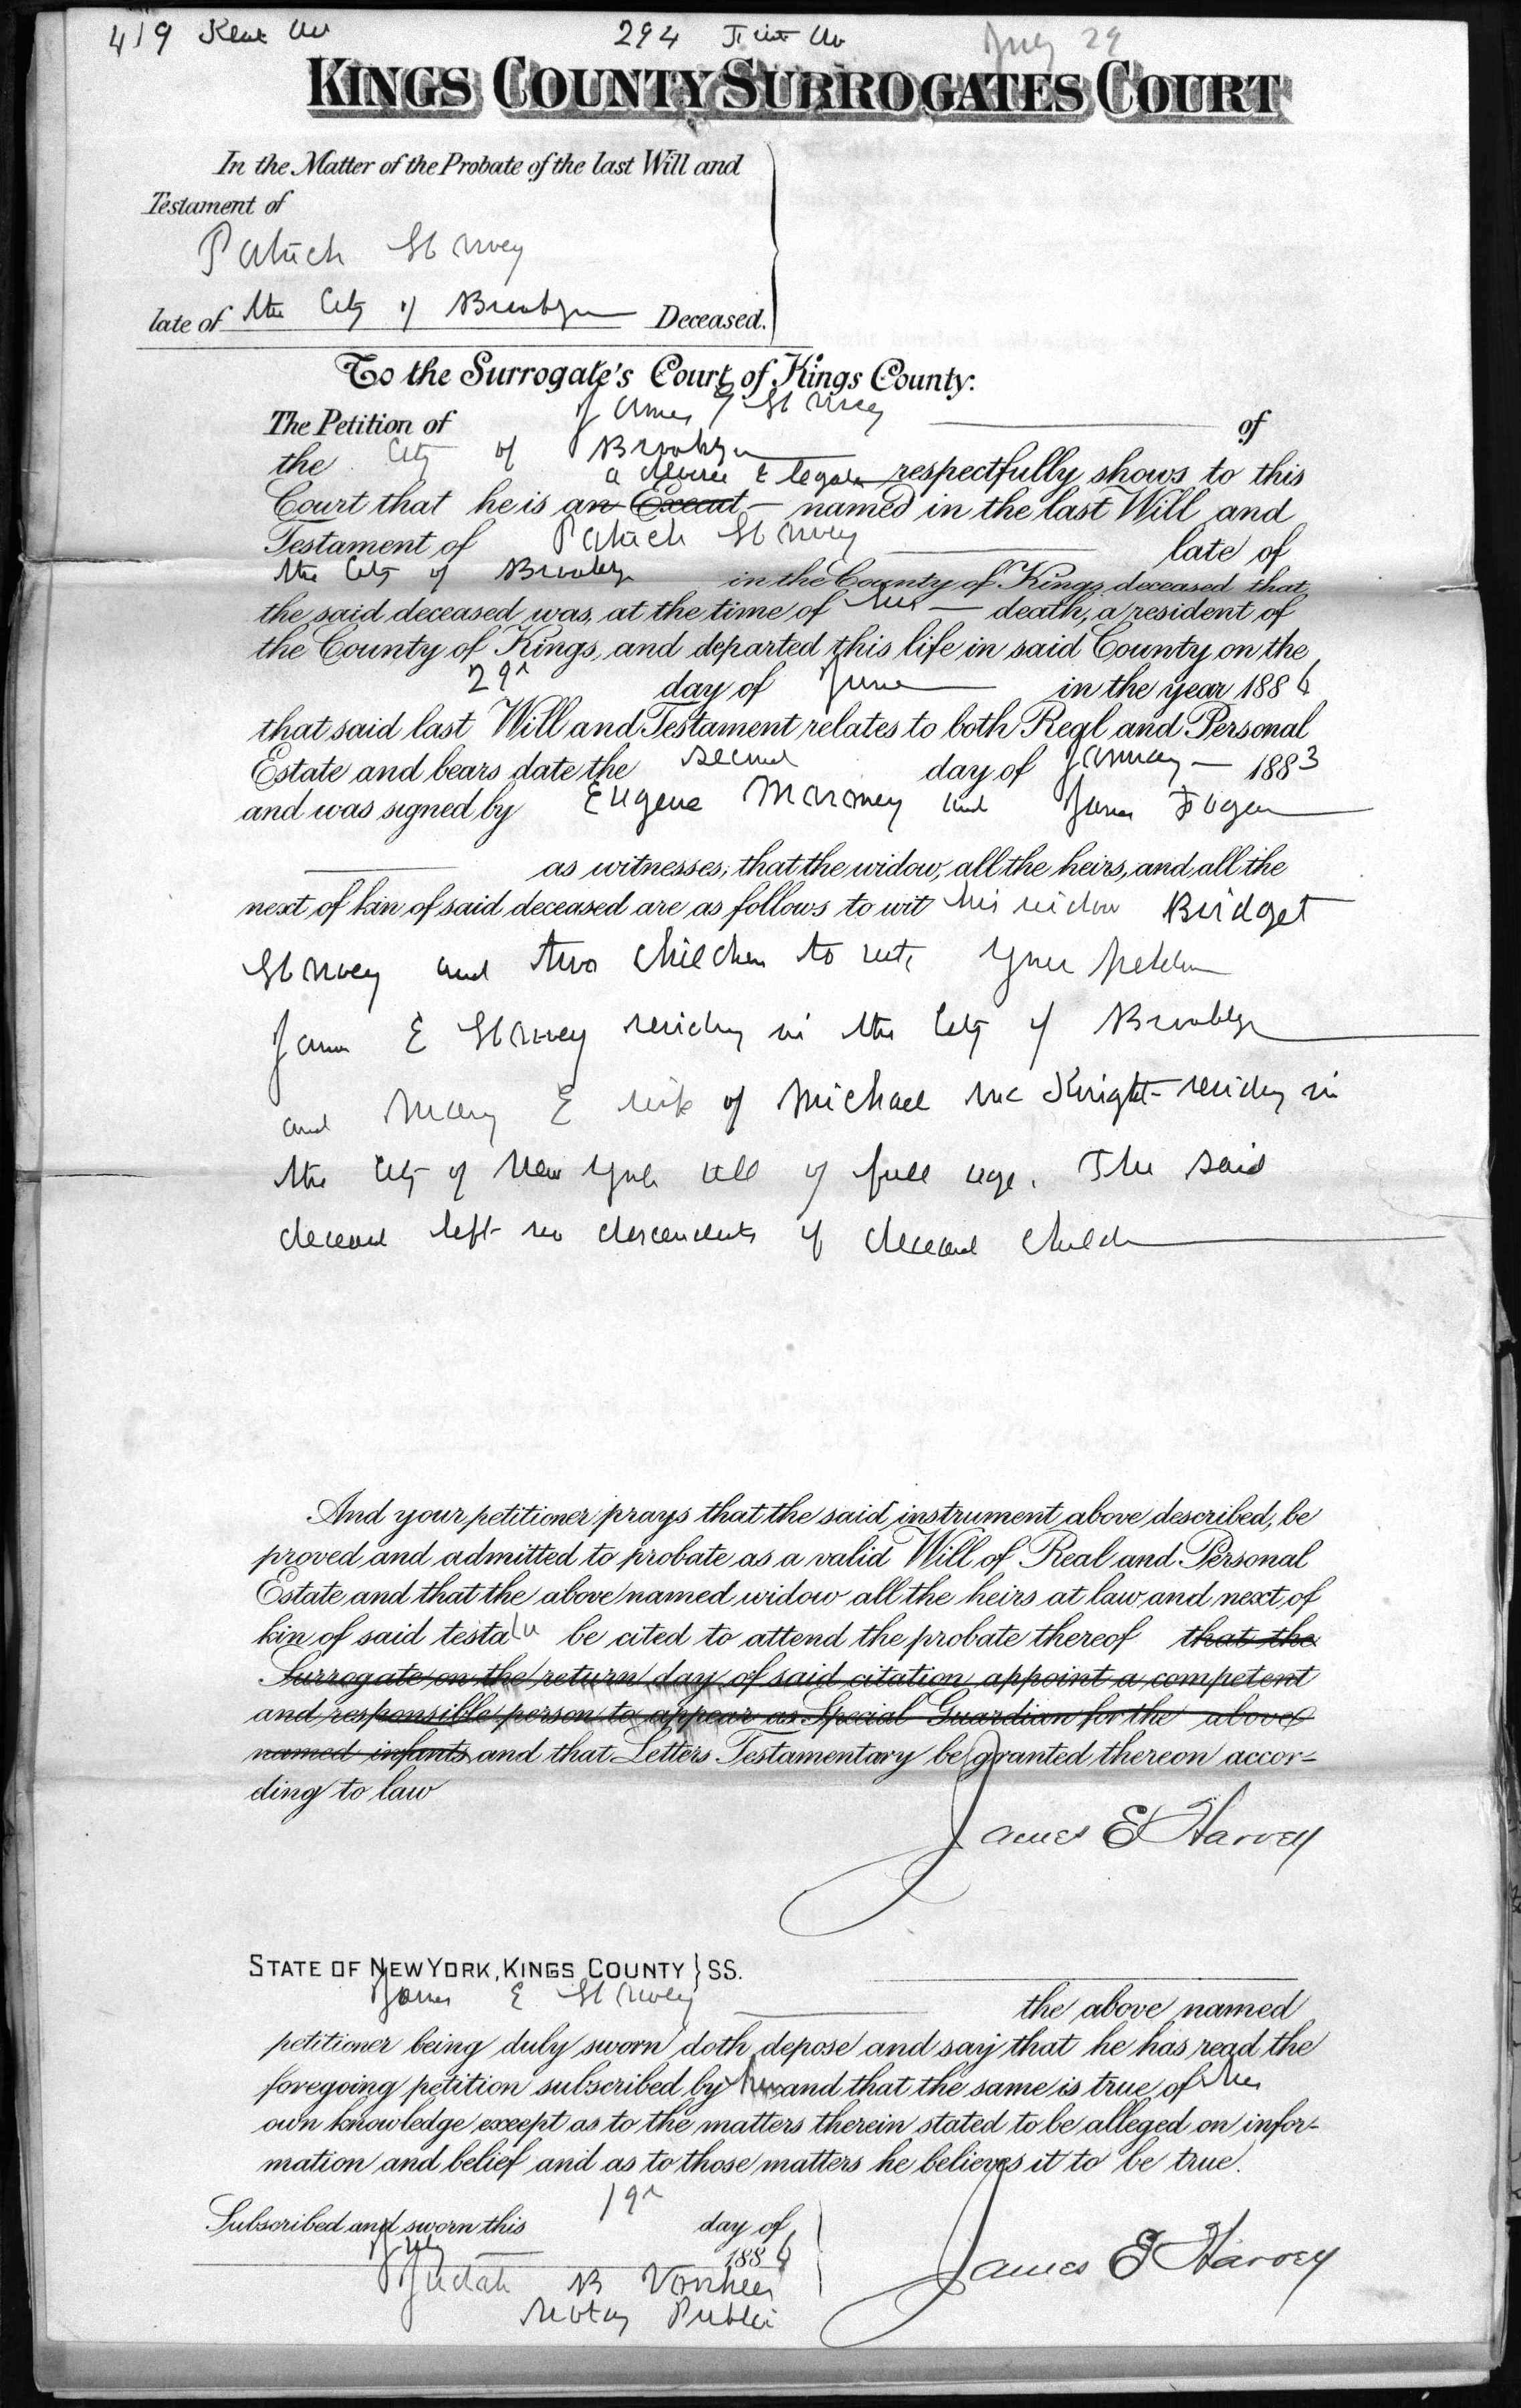 419 Kent Av 294 First Av July 29
KINGS COUNTY SURROGATES COURT
In the Matter of the Probate of the last Will and
Testament of
Patrick Harvey
late of the City of Brooklyn Deceased.
To the Surrogate's Court of Kings County:
The Petition of James E Harvey of
the City of Brooklyn
a devisee & legatee respectfully shows to this
Court that he is an Execut named in the last Will and
Testament of Patrick Harvey late of
the City of Brooklyn in the County of Kings, deceased that
the said deceased was, at the time of his death, a resident of
the County of Kings, and departed this life in said County on the
29th day of June in the year 1886
that said last Will and Testament relates to both Real and Personal
Estate and bears date the second day of January 1883
and was signed by Eugene Maroney and James Fogan
as witnesses; that the widow, all the heirs, and all the
next of kin of said deceased are as follows to wit his widow Bridget
Harvey and two children to wit, your petitioner
James E Harvey residing in the City of Brooklyn
and Mary E wife of Michael McKnight residing in
the City of New York all of full age. The said
deceased left no descendants of deceased child
And your petitioner prays that the said instrument above described, be
proved and admitted to probate as a valid Will of Real and Personal
Estate and that the above named widow all the heirs at law and next of
kin of said testator be cited to attend the probate thereof that the
Surrogate on the return day of said citation appoint a competent
and responsible person to appear as Special Guardian for the above
named infants and that Letters Testamentary be granted thereon accor-
ding to law
James E Harvey
STATE OF NEW YORK, KINGS COUNTY } SS.
James E Harvey the above named
petitioner being duly sworn doth depose and say that he has read the
foregoing petition subscribed by him and that the same is true of his
own knowledge except as to the matters therein stated to be alleged on infor-
mation and belief and as to those matters he believes it to be true.
Subscribed and sworn this 19th day of
July 1886
James E Harvey
Judah B Voorhees
Notary Public